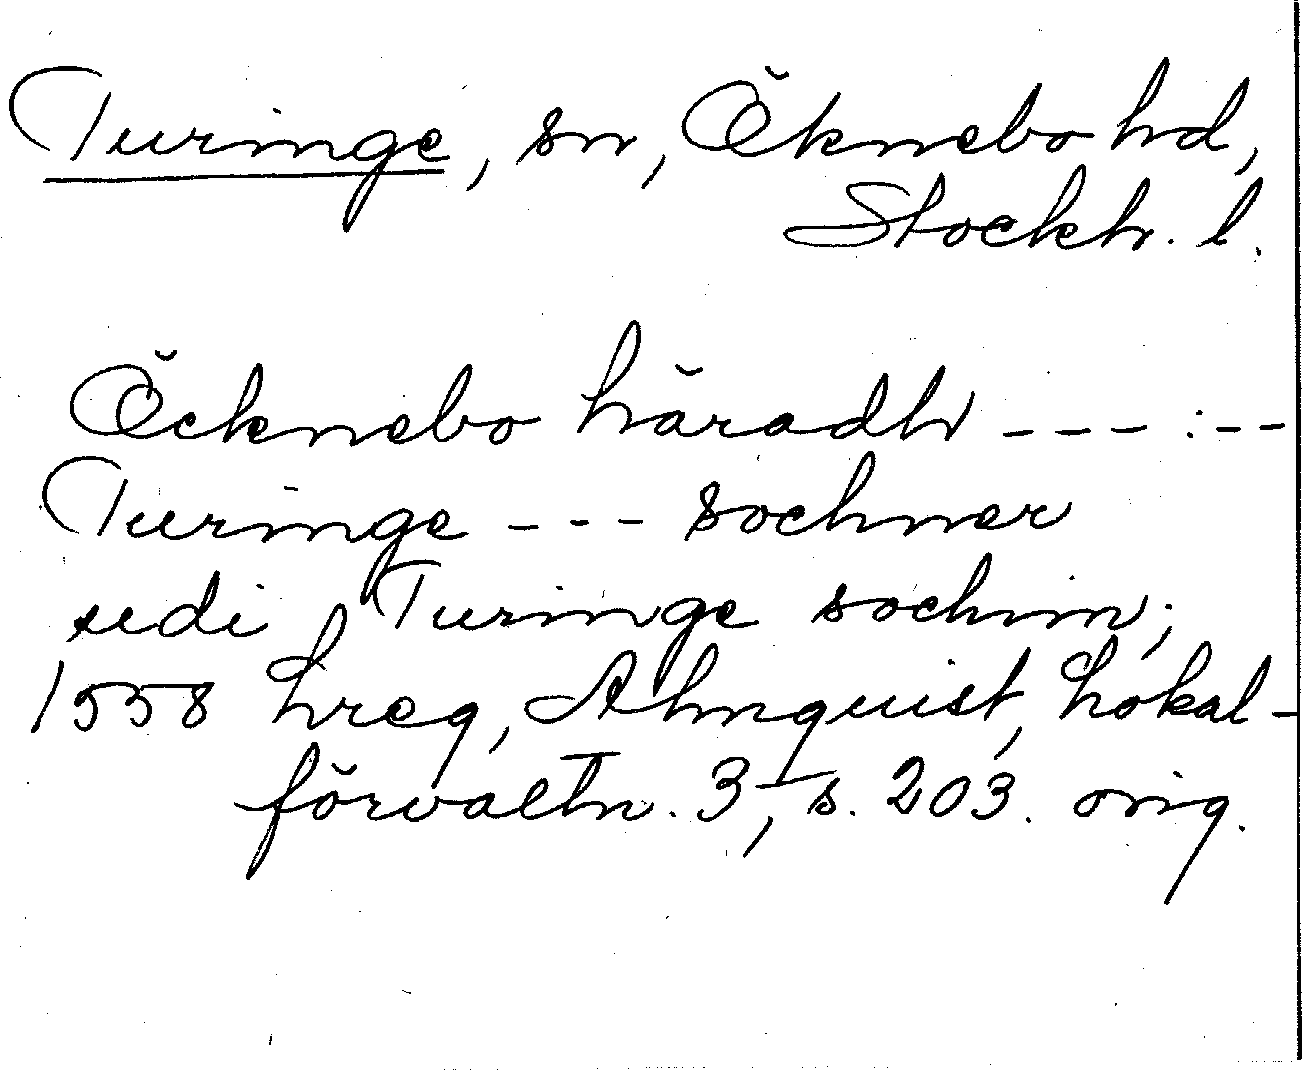 Turinge, sn, Öknebo hd,
Stockh. l.
Öcknebo häradh --- : --
Turinge --- sochner
udi Turinge sochnn;
1558 hreg, Almquist, Lokal-
förvaltn. 3, s. 203. orig.